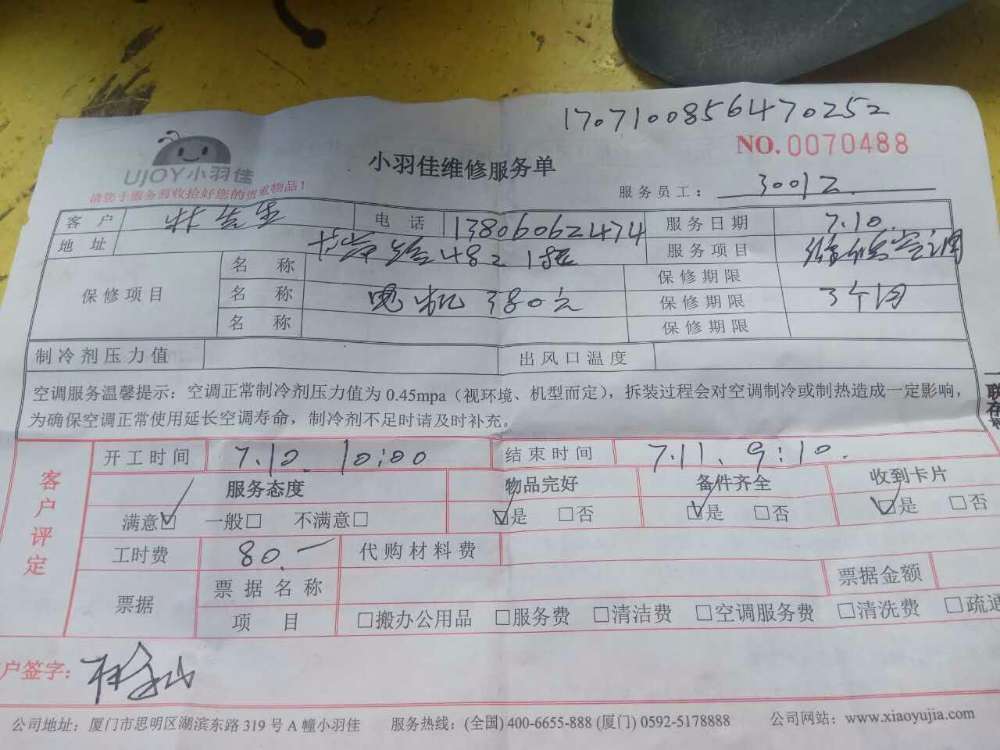 1707100856470252
NO. 0070488
UJOY小羽佳
小羽佳维修服务单
请您于服务前收拾好您的贵重物品!
服务员工: 30012
客户 林先生 电话 13806062474 服务日期 7.10.
地址 482 服务项目 维修空调
保修项目 名称 保修期限
名称 电机 380元 保修期限 3个月
名称 保修期限
制冷剂压力值 出风口温度
空调服务温馨提示:空调正常制冷剂压力值为 0.45mpa(视环境、机型而定),拆装过程会对空调制冷或制热造成一定影响,
为确保空调正常使用延长空调寿命,制冷剂不足时请及时补充。
客户评定
开工时间 7.10. 10:00 结束时间 7.11. 9:10.
服务态度 物品完好 备件齐全 收到卡片
满意☑ 一般□ 不满意□ ☑是 □否 ☑是 □否 ☑是 □否
工时费 80.— 代购材料费
票据 票据名称 票据金额
项目 □搬办公用品 □服务费 □清洁费 □空调服务费 □清洗费 □疏通
户签字:
公司地址:厦门市思明区湖滨东路 319 号 A 幢小羽佳 服务热线:(全国) 400-6655-888 (厦门) 0592-5178888 公司网站:www.xiaoyujia.com